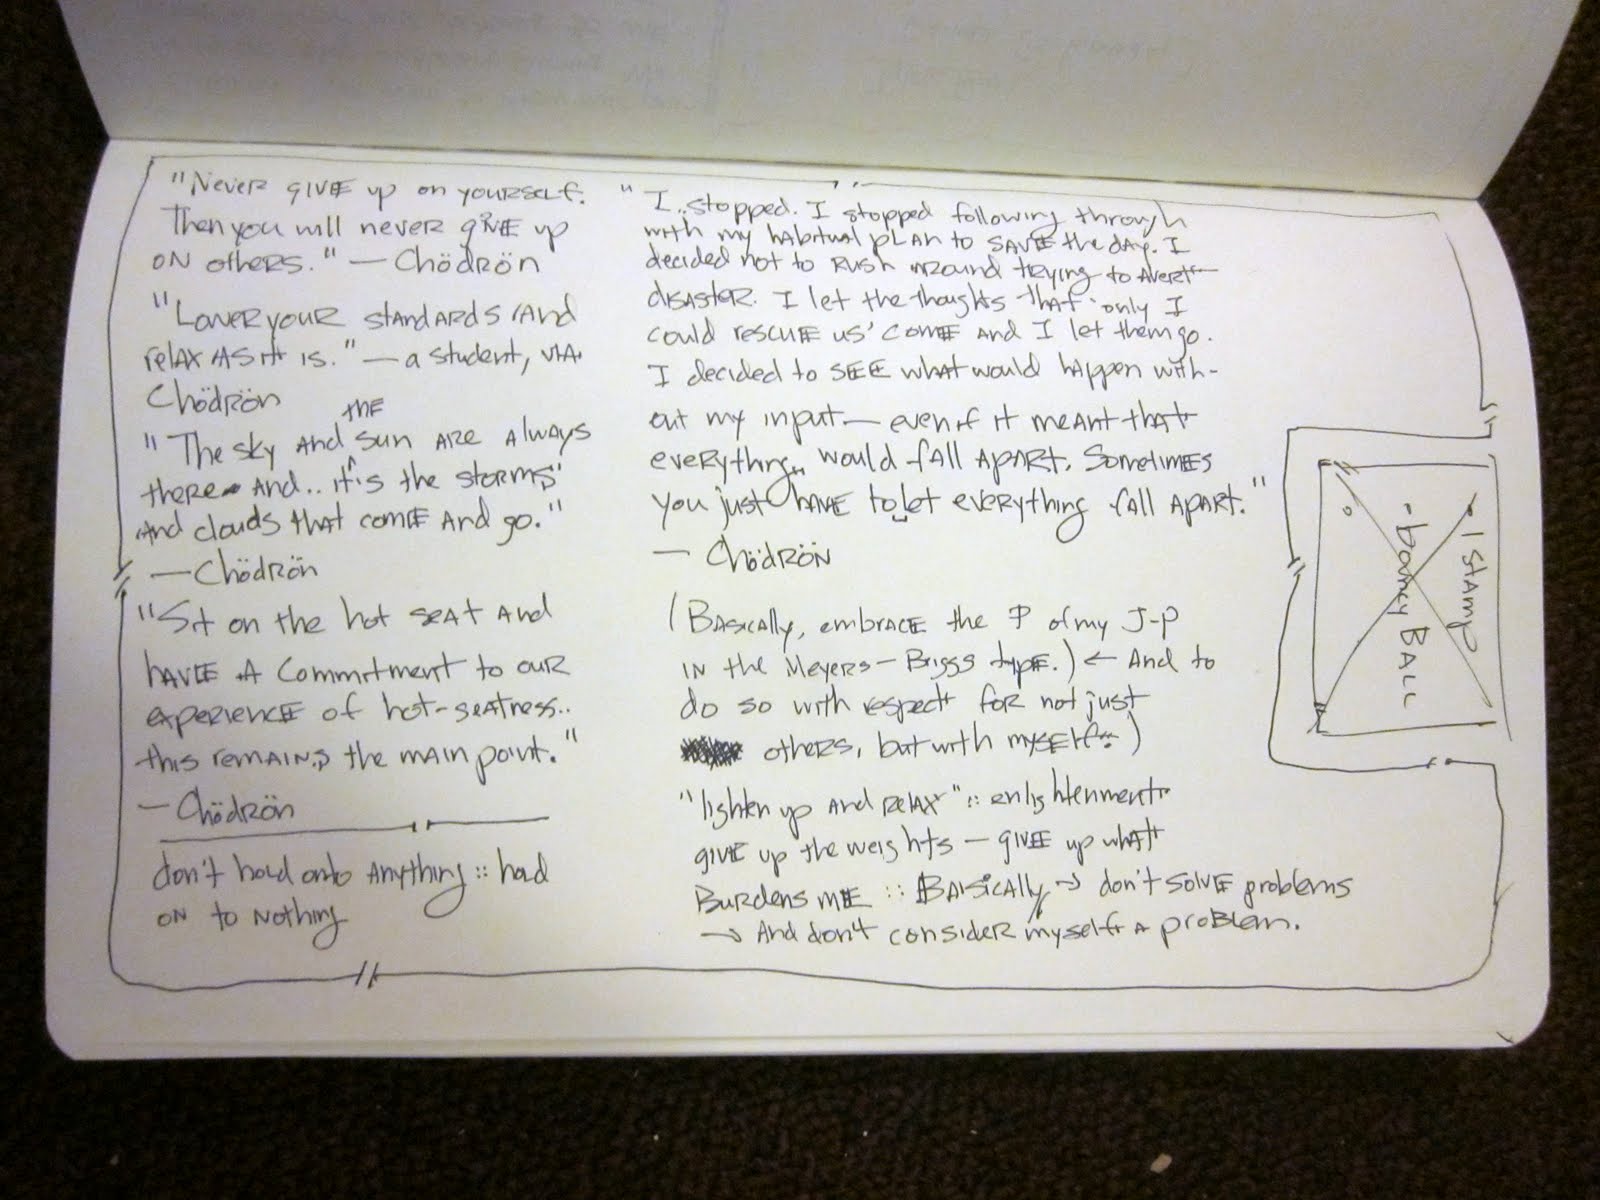 "Never give up on yourself.
Then you will never give up
on others." — Chödrön
"Lower your standards and
relax as it is." — a student, via
Chödrön
"The sky and the sun are always
there and.. it's the storms
and clouds that come and go."
— Chödrön
"Sit on the hot seat and
have a commitment to our
experience of hot-seatness..
this remains the main point."
— Chödrön
don't hold onto anything :: hold
on to nothing
"I.. stopped. I stopped following through
with my habitual plan to save the day. I
decided not to rush around trying to avert
disaster. I let the thoughts that 'only I
could rescue us' come and I let them go.
I decided to see what would happen with-
out my input — even if it meant that
everything would fall apart. Sometimes
you just have to let everything fall apart."
— Chödrön
(Basically, embrace the P of my J-P
in the Meyers-Briggs type.) ← And to
do so with respect for not just
others, but with myself.)
"lighten up and relax" :: enlightenment
give up the weights — give up what
Burdens me :: Basically → don't solve problems
→ And don't consider myself a problem.
- 1 stamp
- bouncy Ball